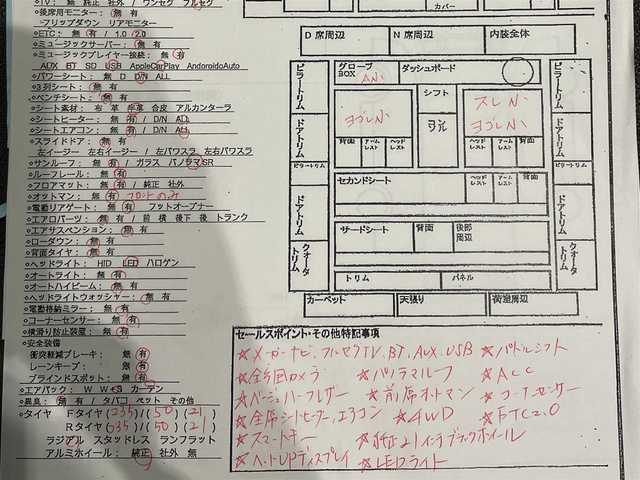 ○TV: 無 純正 社外 / ワンセグ フルセグ
○後席用モニター: 無 有
フリップダウン リアモニター
○ETC: 無 有 / 1.0 2.0
○ミュージックサーバー: 無 有
○ミュージックプレイヤー接続: 無 有
AUX BT SD USB AppleCarPlay AndoroidoAuto
○パワーシート: 無 D D/N ALL
○3列シート: 無 有
○ベンチシート: 無 有
○シート素材: 布 革 半革 合皮 アルカンターラ
○シートヒーター: 無 有 / D/N ALL
○シートエアコン: 無 有 / D/N ALL
○スライドドア: 無 有
左イージー 左右イージー / 左パワスラ 左右パワスラ
○サンルーフ: 無 有 / ガラス パノラマ SR
○ルーフレール: 無 有
○フロアマット: 無 有 / 純正 社外
○オットマン: 無 有 フロントのみ
○電動リアゲート: 無 有 フットオープナー
○エアロパーツ: 無 有 / 前 横 後下 後 トランク
○エアサスペンション: 無 有
○ローダウン: 無 有
○背面タイヤ: 無 有
○ヘッドライト: HID LED ハロゲン
○オートライト: 無 有
○オートハイビーム: 無 有
○ヘッドライトウォッシャー: 無 有
○電動格納ミラー: 無 有
○コーナーセンサー: 無 有
○横滑り防止装置: 無 有
○安全装備
衝突軽減ブレーキ: 無 有
レーンキープ: 無 有
ブラインドスポット: 無 有
○エアバック: W W+S カーテン
○臭気: 無 有 / タバコ ペット その他
○タイヤ Fタイヤ(235)/(50)(21)
Rタイヤ(235)/(50)(21)
ラジアル スタッドレス ランフラット
アルミホイール: 純正 社外 無
カバー
D 席周辺 N 席周辺 内装全体
ピラートリム
ドアトリム
ピラートリム
ドアトリム
クォータトリム
グローブBOX
ダッシュボード
シフト
コンソル
ヨゴレ小
スレ小
ヨゴレ小
背面 アームレスト ヘッドレスト
ヘッドレスト アームレスト 背面
セカンドシート
ヘッドレスト アームレスト 背面
サードシート 背面 後部周辺
トリム パネル
ピラートリム
ドアトリム
ピラートリム
ドアトリム
クォータトリム
カーペット 天張り 荷室周辺
セールスポイント・その他特記事項
☆メーカーナビ、フルセグTV、BT、AUX、USB ☆パドルシフト
☆全周囲カメラ ☆パノラマルーフ ☆ACC
☆ベージュハーフレザー ☆前席オットマン ☆コーナーセンサー
☆全席シートヒーター、エアコン ☆4WD ☆ETC2.0
☆スマートキー ☆純正21インチブラックホイール
☆ヘッドUPディスプレイ ☆LEDライト